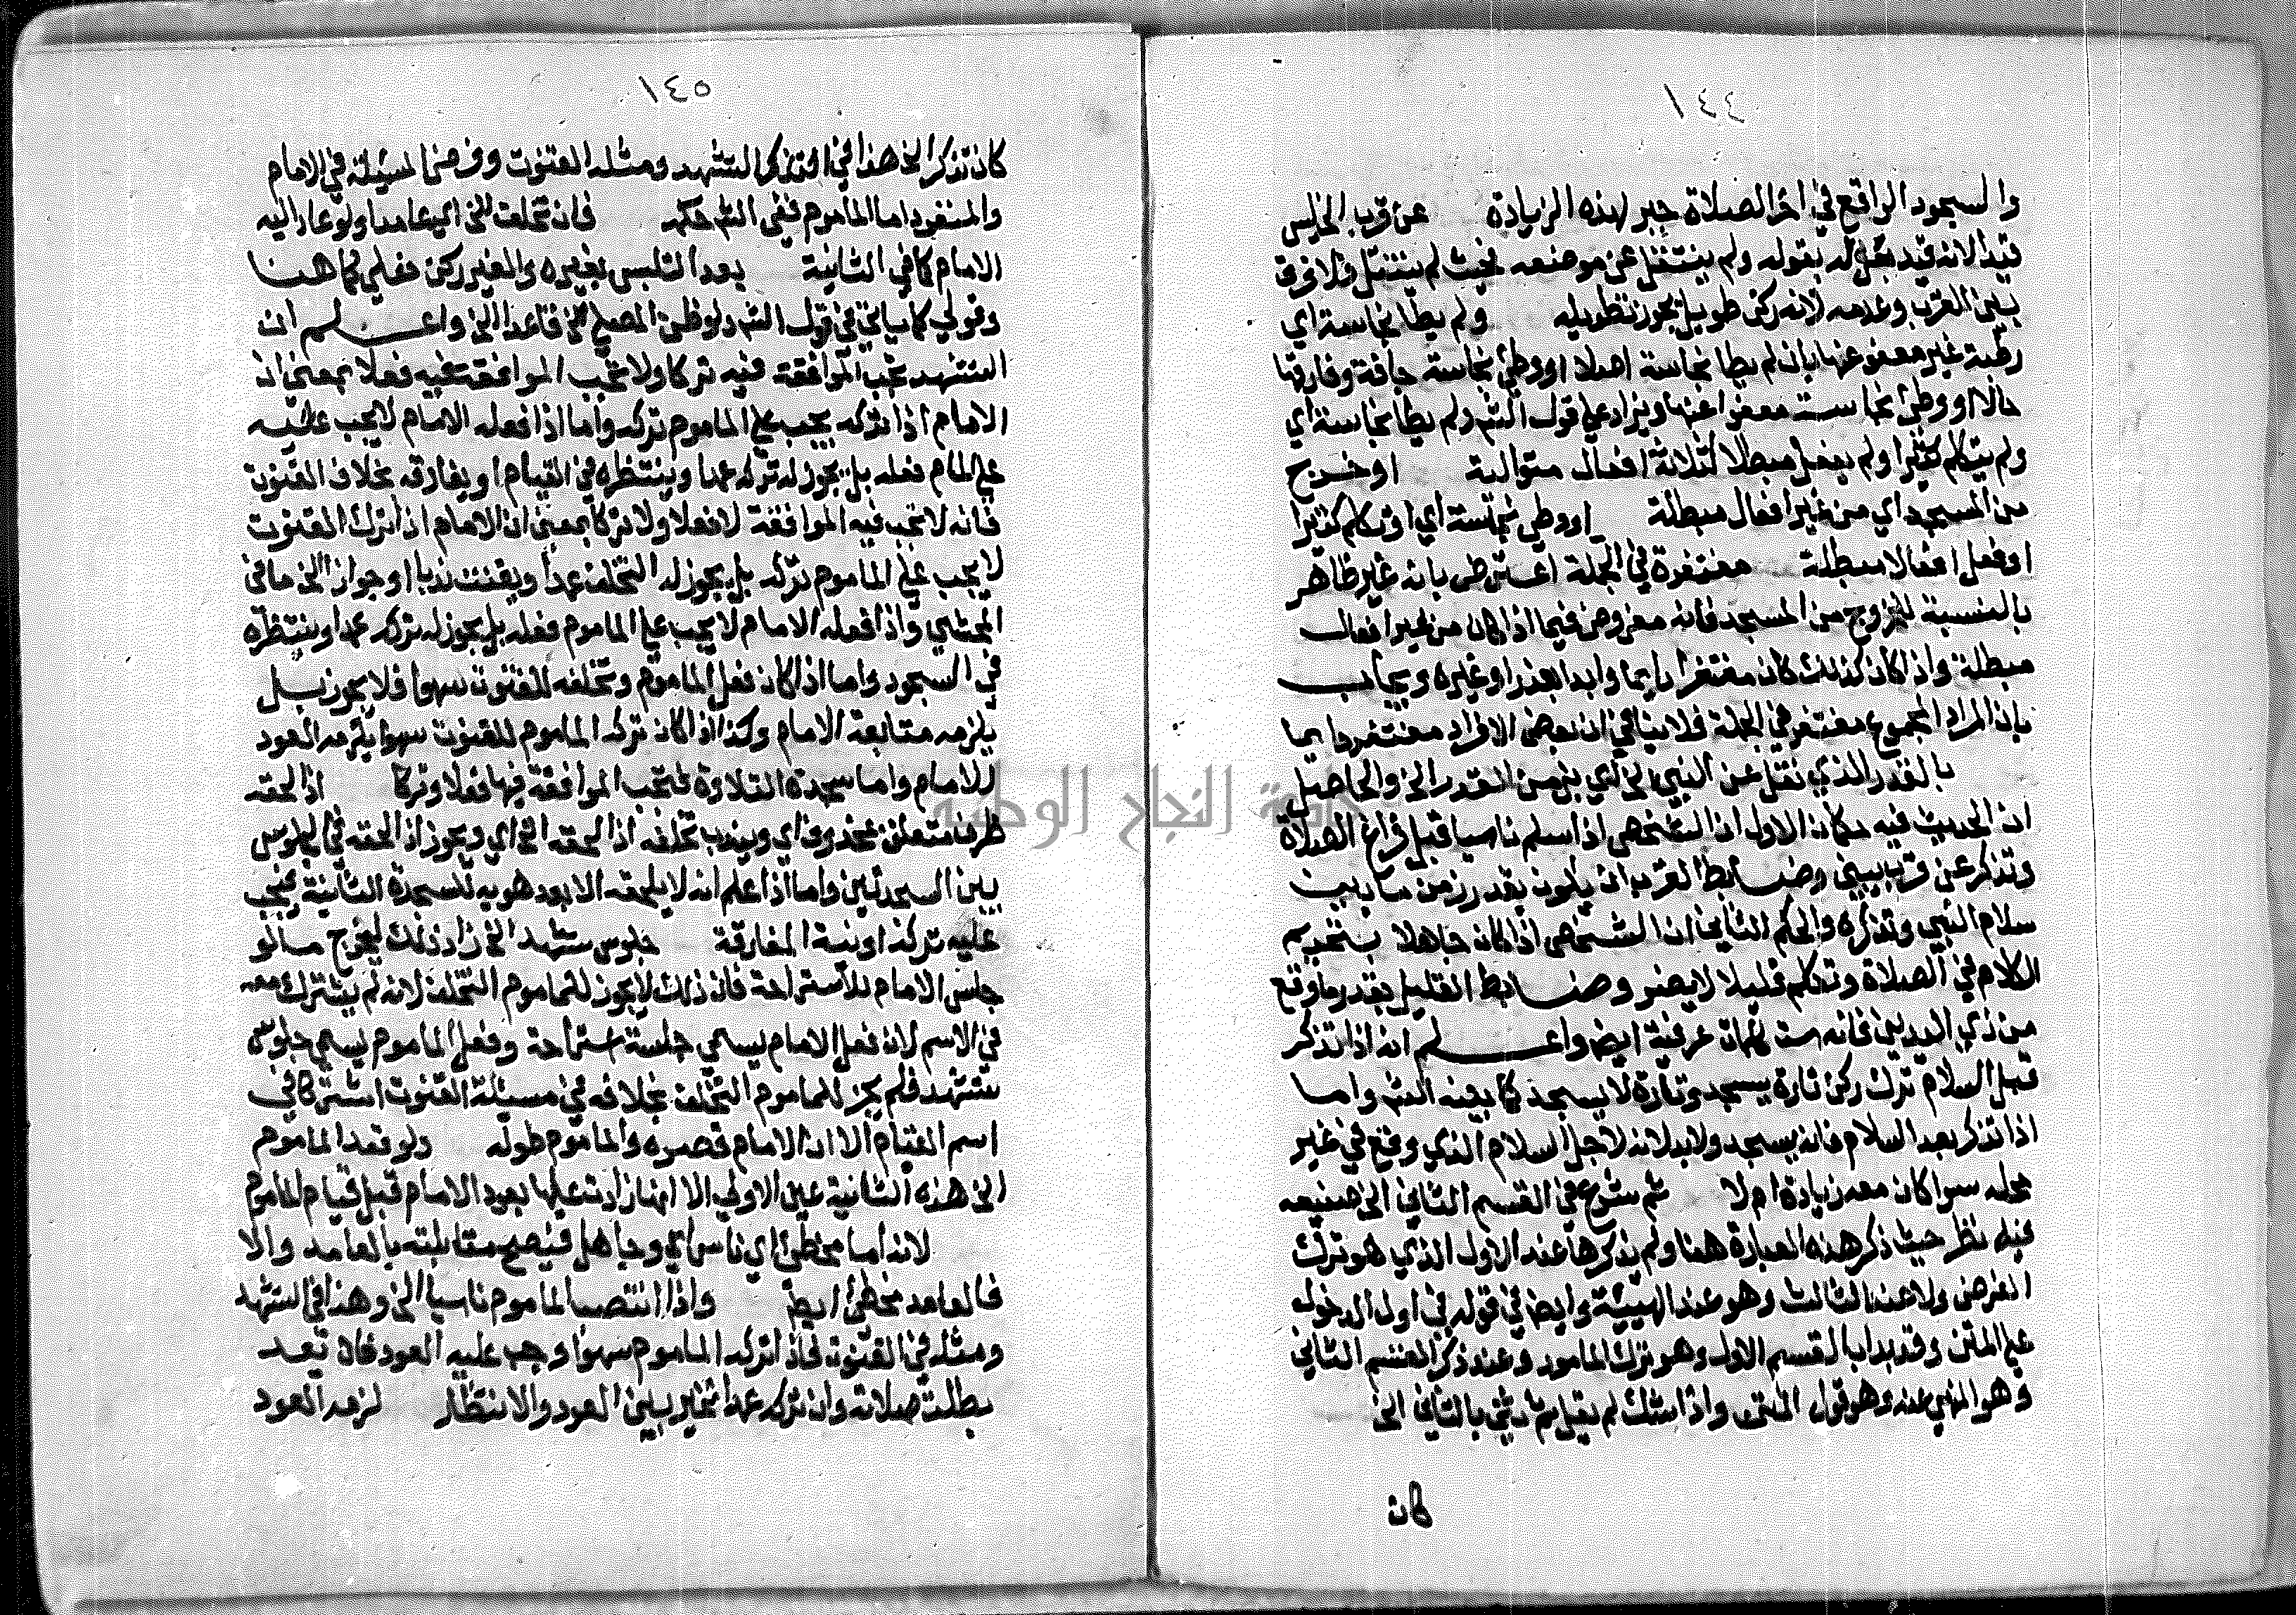 ١٤٤
والسجود الواقع في اخر الصلاة جبر لهذه الزيادة عن قرب الخ ليس
قيدا لانه قيد بقوله ولم ينتقل عن موضعه بحيث لم ينتقل ولا فرق
بين القرب وعدمه لانه ركن طويل يجوز تطويله ولم يطا نجاسة اي
رطبة غير معفو عنها بان لم يطا نجاسة اصلا او وطئ نجاسة جافة وفارقها
حالا او وطئ نجاسة معفوا عنها ويزاد على قول الش ولم يطا نجاسة اي
ولم يتكلم كثيرا ولم يفعل مبطلا كثلاثة افعال متوالية او خرج
من المسجد اي من غير افعال مبطلة او وطئ نجاسة اي او تكلم كثيرا
او فعل افعالا مبطلة مغتفرة في الجملة اعترض بانه غير ظاهر
بالنسبة للخروج من المسجد فانه مفروض فيما اذا كان من غير افعال
مبطلة واذا كان كذلك كان مغتفرا دايما وابدا بعذر او غيره ويجاب
بان المراد المجموع مغتفر في الجملة فلا ينافي ان بعض الافراد مغتفر دايما
بالقدر الذي نقل عن النبي الخ اي بزمن القدر الخ والحاصل
ان الحديث فيه حكمان الاول ان الشخص اذا سلم ناسيا قبل فراغ الصلاة
وتذكر عن قرب يبني وضابط القرب ان يكون بقدر زمن ما بين
سلام النبي وتذكره والحكم الثاني ان الشخص اذا كان جاهلا بتحريم
الكلام في الصلاة وتكلم قليلا لا يضر وضابط القليل بقدر ما وقع
من ذي اليدين فانه ست كلمات عرفية ايض واعلم انه اذا تذكر
قبل السلام ترك ركن تارة يسجد وتارة لا يسجد كما بينه الش واما
اذا تذكر بعد السلام فانه يسجد ولابد لانه لاجل السلام الذي وقع في غير
محله سوا كان معه زيادة ام لا ثم شرع في القسم الثاني الخ صنيعه
فيه نظر حيث ذكر هذه العبارة هنا ولم يذكرها عند الاول الذي هو ترك
الفرض ولا عند الثالث وهو عند الهيئة وايض في قوله في اول الدخول
على المتن وقد بدا بالقسم الاول وهو ترك المامور وعند ذكر القسم الثاني
وهو المنهي عنه وهو قول المتن واذا شك لم يقل ثم ثنى بالثاني الخ
كان
١٤٥
كان تذكر الخ هذا في تذكر التشهد ومثله القنوت وفرض المسئلة في الامام
والمنفرد اما الماموم ففي الش حكمه فان تخلف الخ اي عامدا ولو عاد اليه
الامام كما في الثانية بعد التلبس بغيره والغير ركن فعلي كما هنا
وقولي كما ياتي في قول الش ولو ظن المصلي الخ قاعدا الخ واعلم ان
التشهد تجب الموافقة فيه تركا ولا تجب الموافقة فيه فعلا بمعنى ان
الامام اذا تركه يجب على الماموم تركه واما اذا فعله الامام لا يجب عليه
على المام فعله بل يجوز له تركه عمدا وينتظره في القيام او يفارقه بخلاف القنوت
فانه لا تجب فيه الموافقة لا فعلا ولا تركا بمعنى ان الامام اذا ترك القنوت
لا يجب على الماموم تركه بل يجوز له التخلف عمدا ويقنت ندبا او جوازا الخ ما في
المحشي واذا فعله الامام لا يجب على الماموم فعله بل يجوز له تركه عمدا وينتظره
في السجود واما اذا كان فعل الماموم وتخلفه للقنوت سهوا فلا يجوز بل
يلزمه متابعة الامام وكذا اذا كان ترك الماموم للقنوت سهوا يلزمه العود
للامام واما سجدة التلاوة فتجب الموافقة فيها فعلا وتركا اذا لحقه
ظرف متعلق بمحذوف اي ويندب تخلفه اذا لحقه الخ اي ويجوز اذا لحقه في الجلوس
بين السجدتين واما اذا علم انه لا يلحقه الا بعد هويه للسجدة الثانية فيجب
عليه تركه او نية المفارقة جلوس تشهد الخ زاد ذلك ليخرج ما لو
جلس الامام للاستراحة فان ذلك لا يجوز للماموم التخلف لانه لم يشترك معه
في الاسم لان فعل الامام يسمى جلسة استراحة وفعل الماموم يسمى جلوس
تشهد فلم يجز للماموم التخلف بخلافه في مسئلة القنوت اشتركا في
اسم القيام الا ان الامام قصره والماموم طوله ولو قعد الماموم
الخ هذه الثانية عين الاولى الا انها زادت عليها بعود الامام قبل قيام الماموم
لانه اما مخطئ اي ناس اي وجاهل فيصح مقابلته بالعامد والا
فالعامد مخطئ ايض واذا انتصب الماموم ناسيا الخ وهذا في التشهد
ومثله في القنوت فاذا تركه الماموم سهوا وجب عليه العود فان تعمد
بطلت صلاته وان تركه عمدا تخير بين العود والانتظار لزمه العود
جامعة النجاح الوطنية